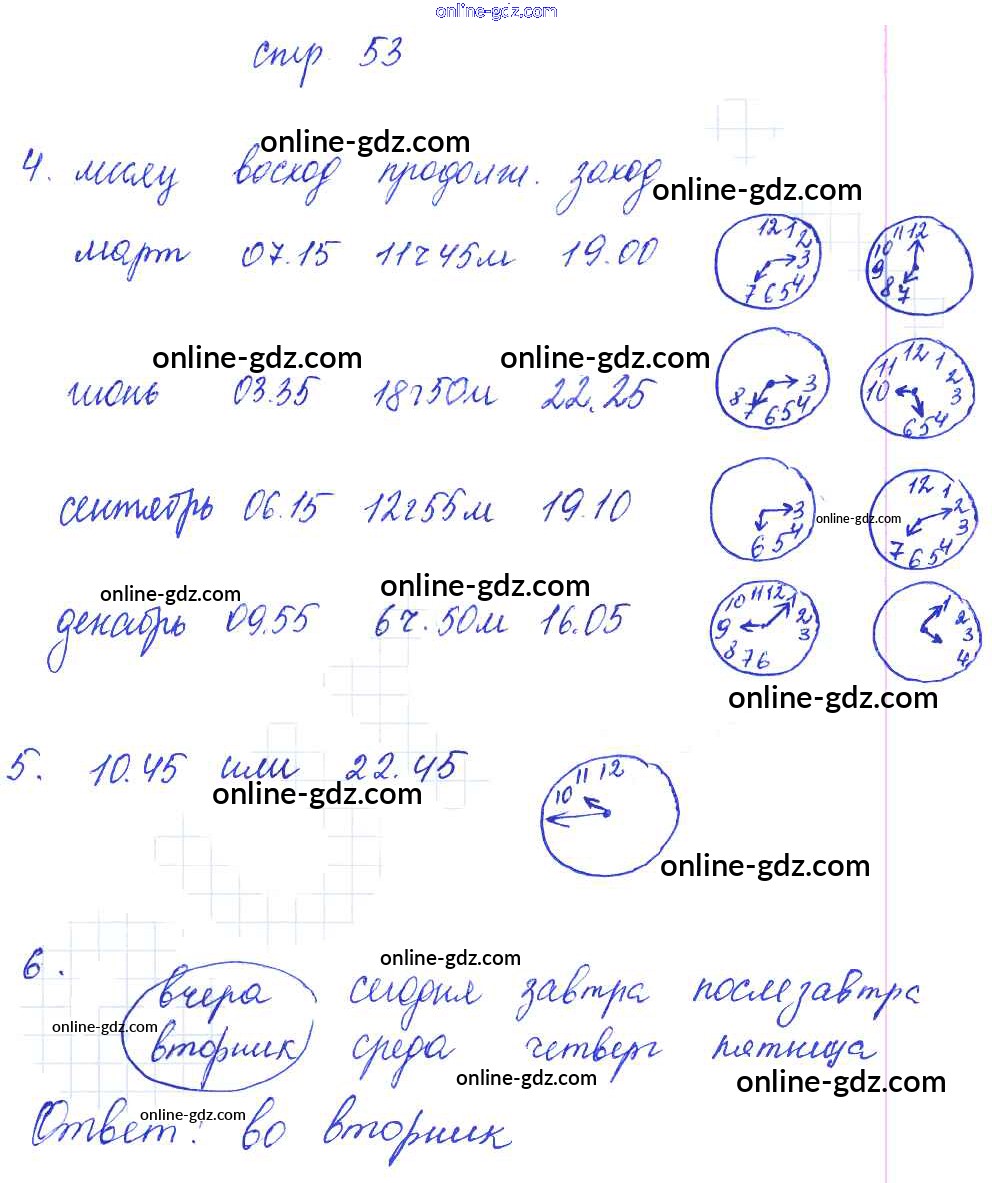 online-gdz.com
стр 53
online-gdz.com
4. месяц восход продолж. заход
online-gdz.com
март 07.15 11ч45м 19.00
12 1 2 3 4 5 6 7
11 12 10 9 8 7
online-gdz.com online-gdz.com
июнь 03.35 18ч50м 22.25
3 4 5 6 7 8
12 1 2 3 4 5 6 10 11
сентябрь 06.15 12ч55м 19.10
3 4 5 6
online-gdz.com
12 1 2 3 4 5 6 7
online-gdz.com online-gdz.com
декабрь 09.55 6ч.50м 16.05
10 11 12 1 2 3 6 7 8 9
1 2 3 4
online-gdz.com
5. 10.45 или 22.45
10 11 12
online-gdz.com
online-gdz.com
6.
online-gdz.com
вчера сегодня завтра послезавтра
online-gdz.com
вторник среда четверг пятница
online-gdz.com online-gdz.com
online-gdz.com
Ответ: во вторник